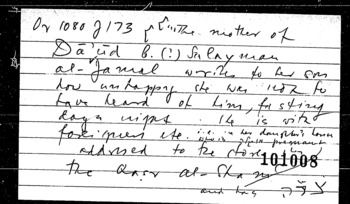 Or 1080 J 173 the mother of
Da'ud B. (?) Sulayman
al-Jamal writes to her son
how unhappy she was not to
have heard of him, fasting
day & night. He is with
foreigners etc. i.e. in her daughter's house
which pregnant
addressed to the store
101008
the Qasr al-Sham
and has